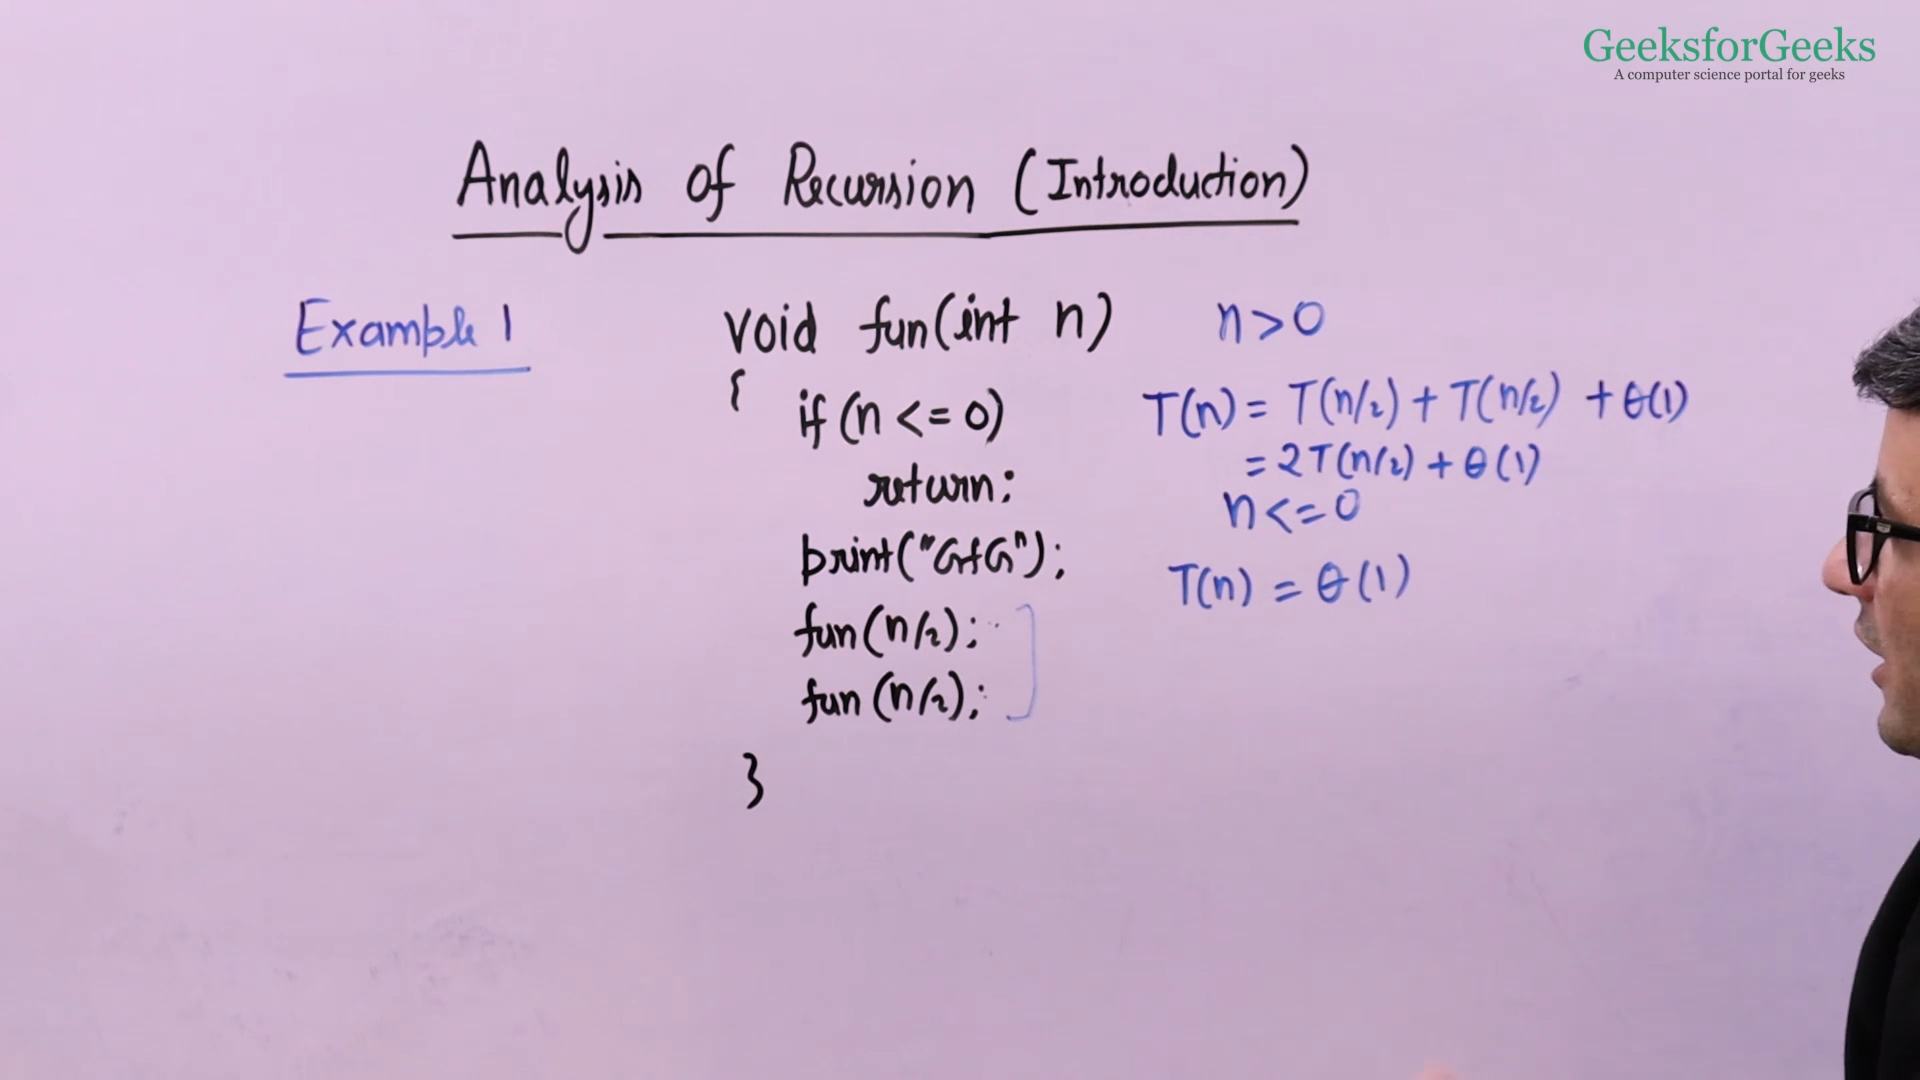 GeeksforGeeks
A computer science portal for geeks
Analysis of Recursion (Introduction)
Example 1
void fun(int n)
{
if (n <= 0)
return;
print("GfG");
fun(n/2);
fun(n/2);
}
n>0
T(n) = T(n/2) + T(n/2) + θ(1)
= 2T(n/2) + θ(1)
n<=0
T(n) = θ(1)